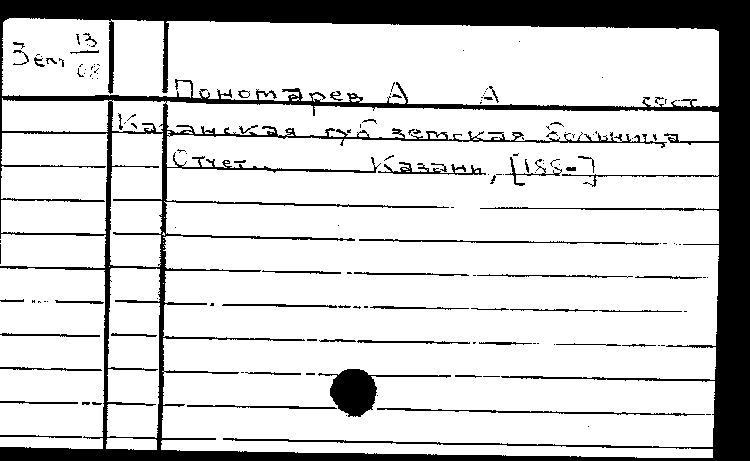 Зем 13
08
Пономарев А А сост.
Казанская губ земская больница.
Отчет... Казань, [188-]